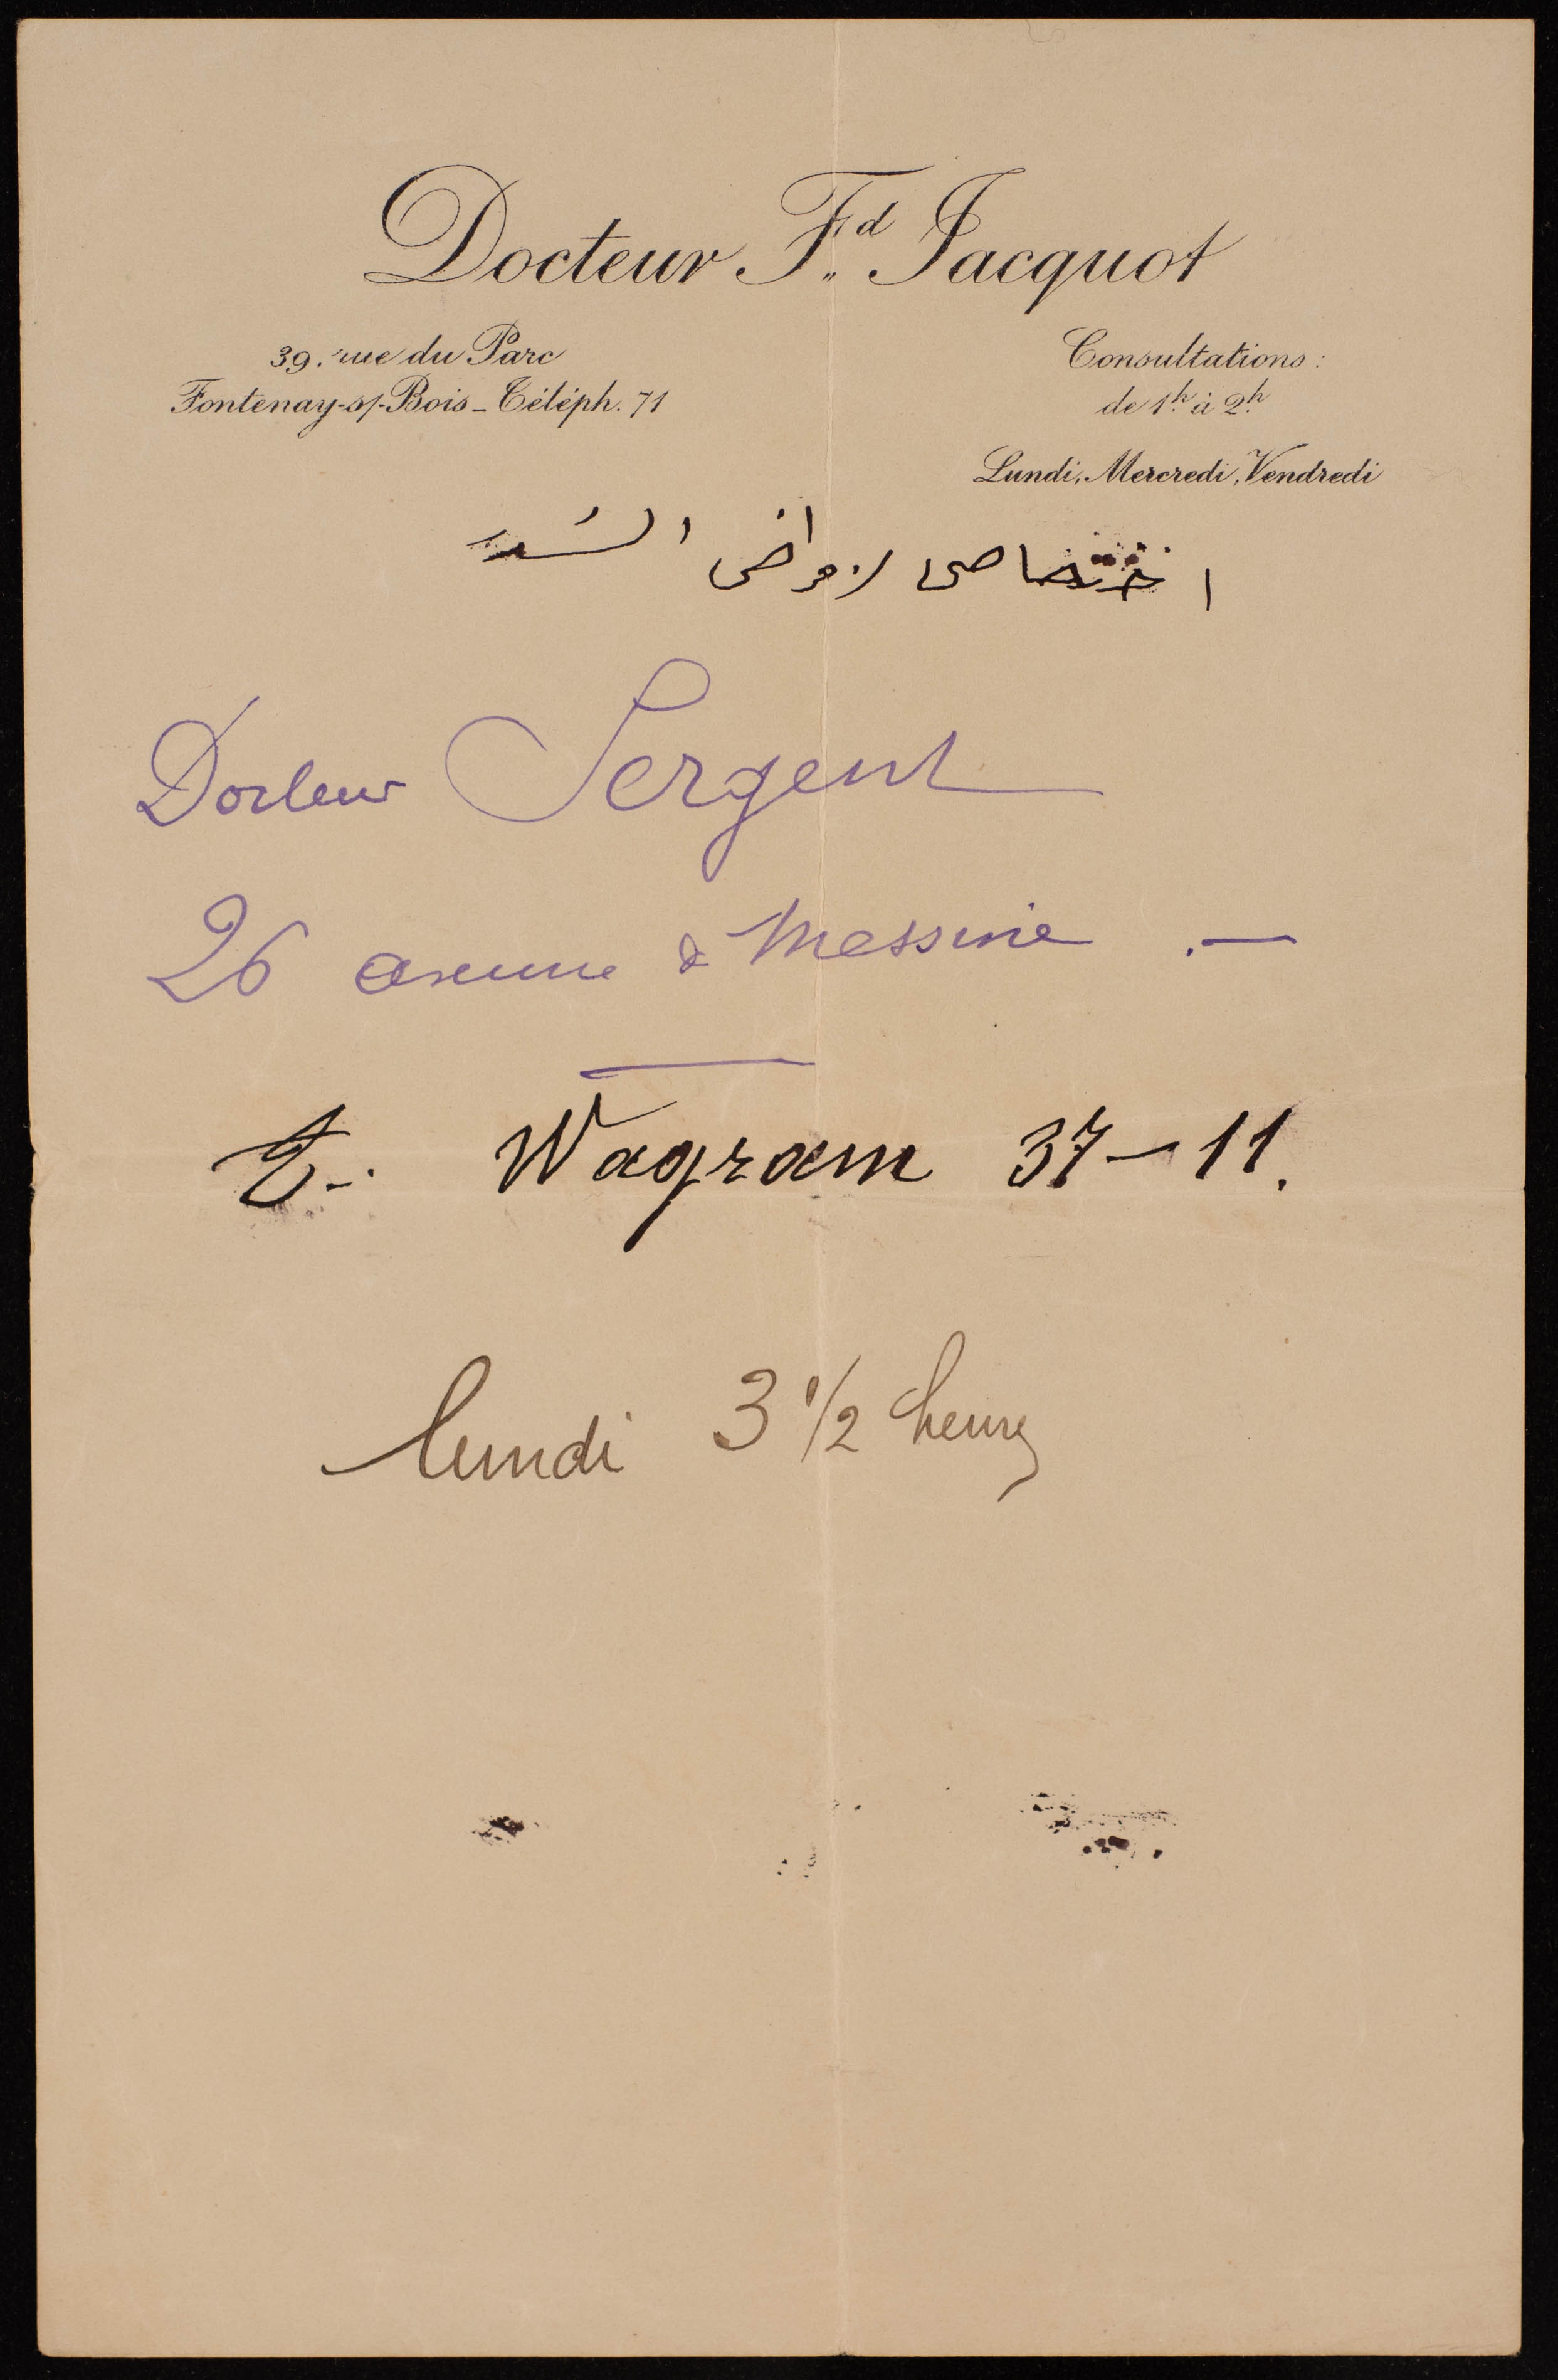 Docteur F.d Jacquot
39, rue du Parc
Fontenay-s/-Bois _ Téléph. 71
Consultations :
de 1h. à 2h.
Lundi, Mercredi, Vendredi
اختصاصى لامراض الصدر
Docteur Sergent
26 avenue de Messine . —
T. - Wagram 37 - 11.
lundi 3 1/2 heures